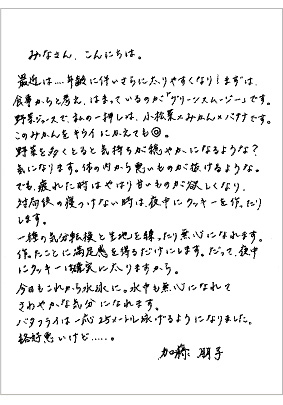 みなさん、こんにちは。
最近は…年齢に伴いさらに太りやすくなり!まずは、
食事からと考え、はまっているのが「グリーンスムージー」です。
野菜ジュースで、私の一押しは、小松菜×みかん×バナナです。
このみかんをキウイにかえても◎。
野菜を多くとると気持ちが穏やかになるような?
気になります。体の内から悪いものが抜けるような。
でも、疲れた時はやはり甘いものが欲しくなり、
対局後の寝つけない時は、夜中にクッキーを作ったり
します。
一種の気分転換と生地を練ったり無心になれます。
作ったことに満足感を得るだけにします。だって、夜中
にクッキーは確実に太りますから。
今日もこれから水泳に。水中も無心になれて
さわやかな気分になれます。
バタフライは一応25メートル泳げるようになりました。
格好悪いけど……。
加藤 朋子